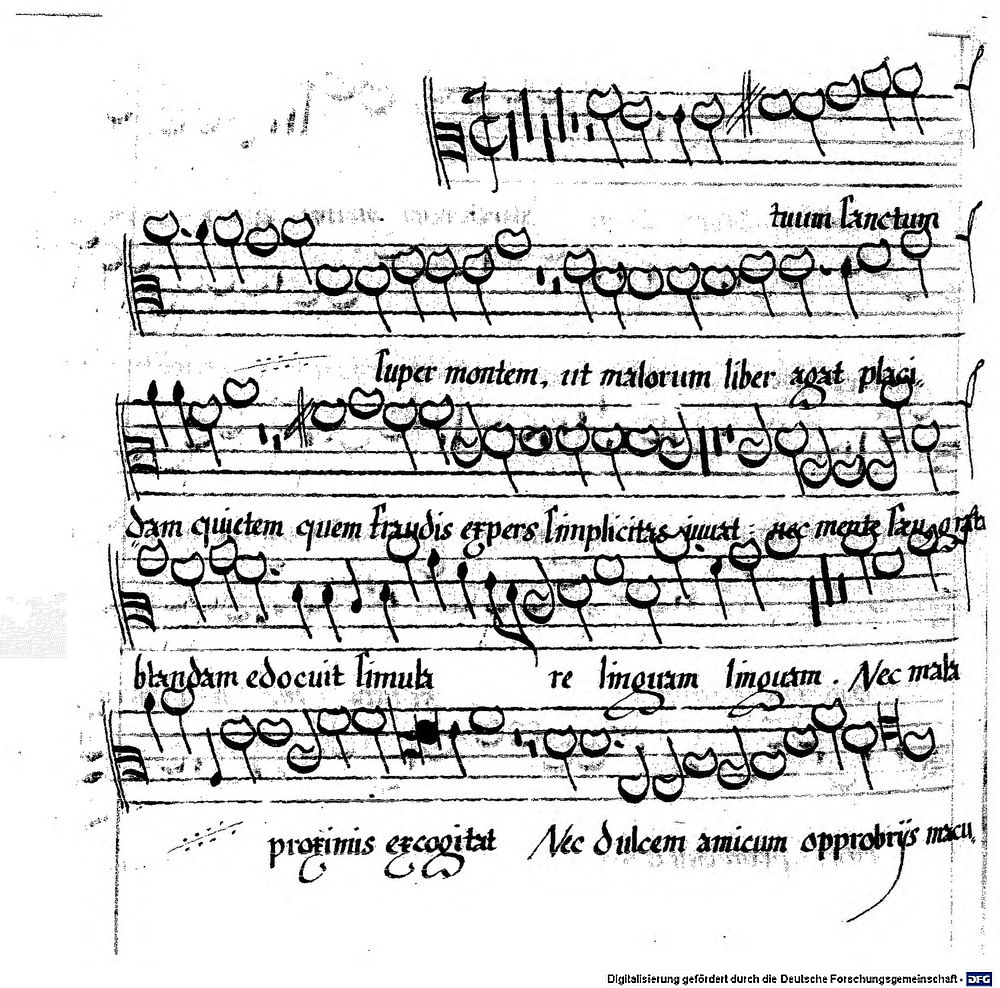 tuum sanctum
super montem, ut malorum liber agat placi,
dam quietem quem fraudis expers simplicitas iuuat nec mente
blandam edocuit simula re linguam linguam. Nec mala
proximis excogitat Nec dulcem amicum opprobrijs macu,
Digitalisierung gefördert durch die Deutsche Forschungsgemeinschaft - DFG